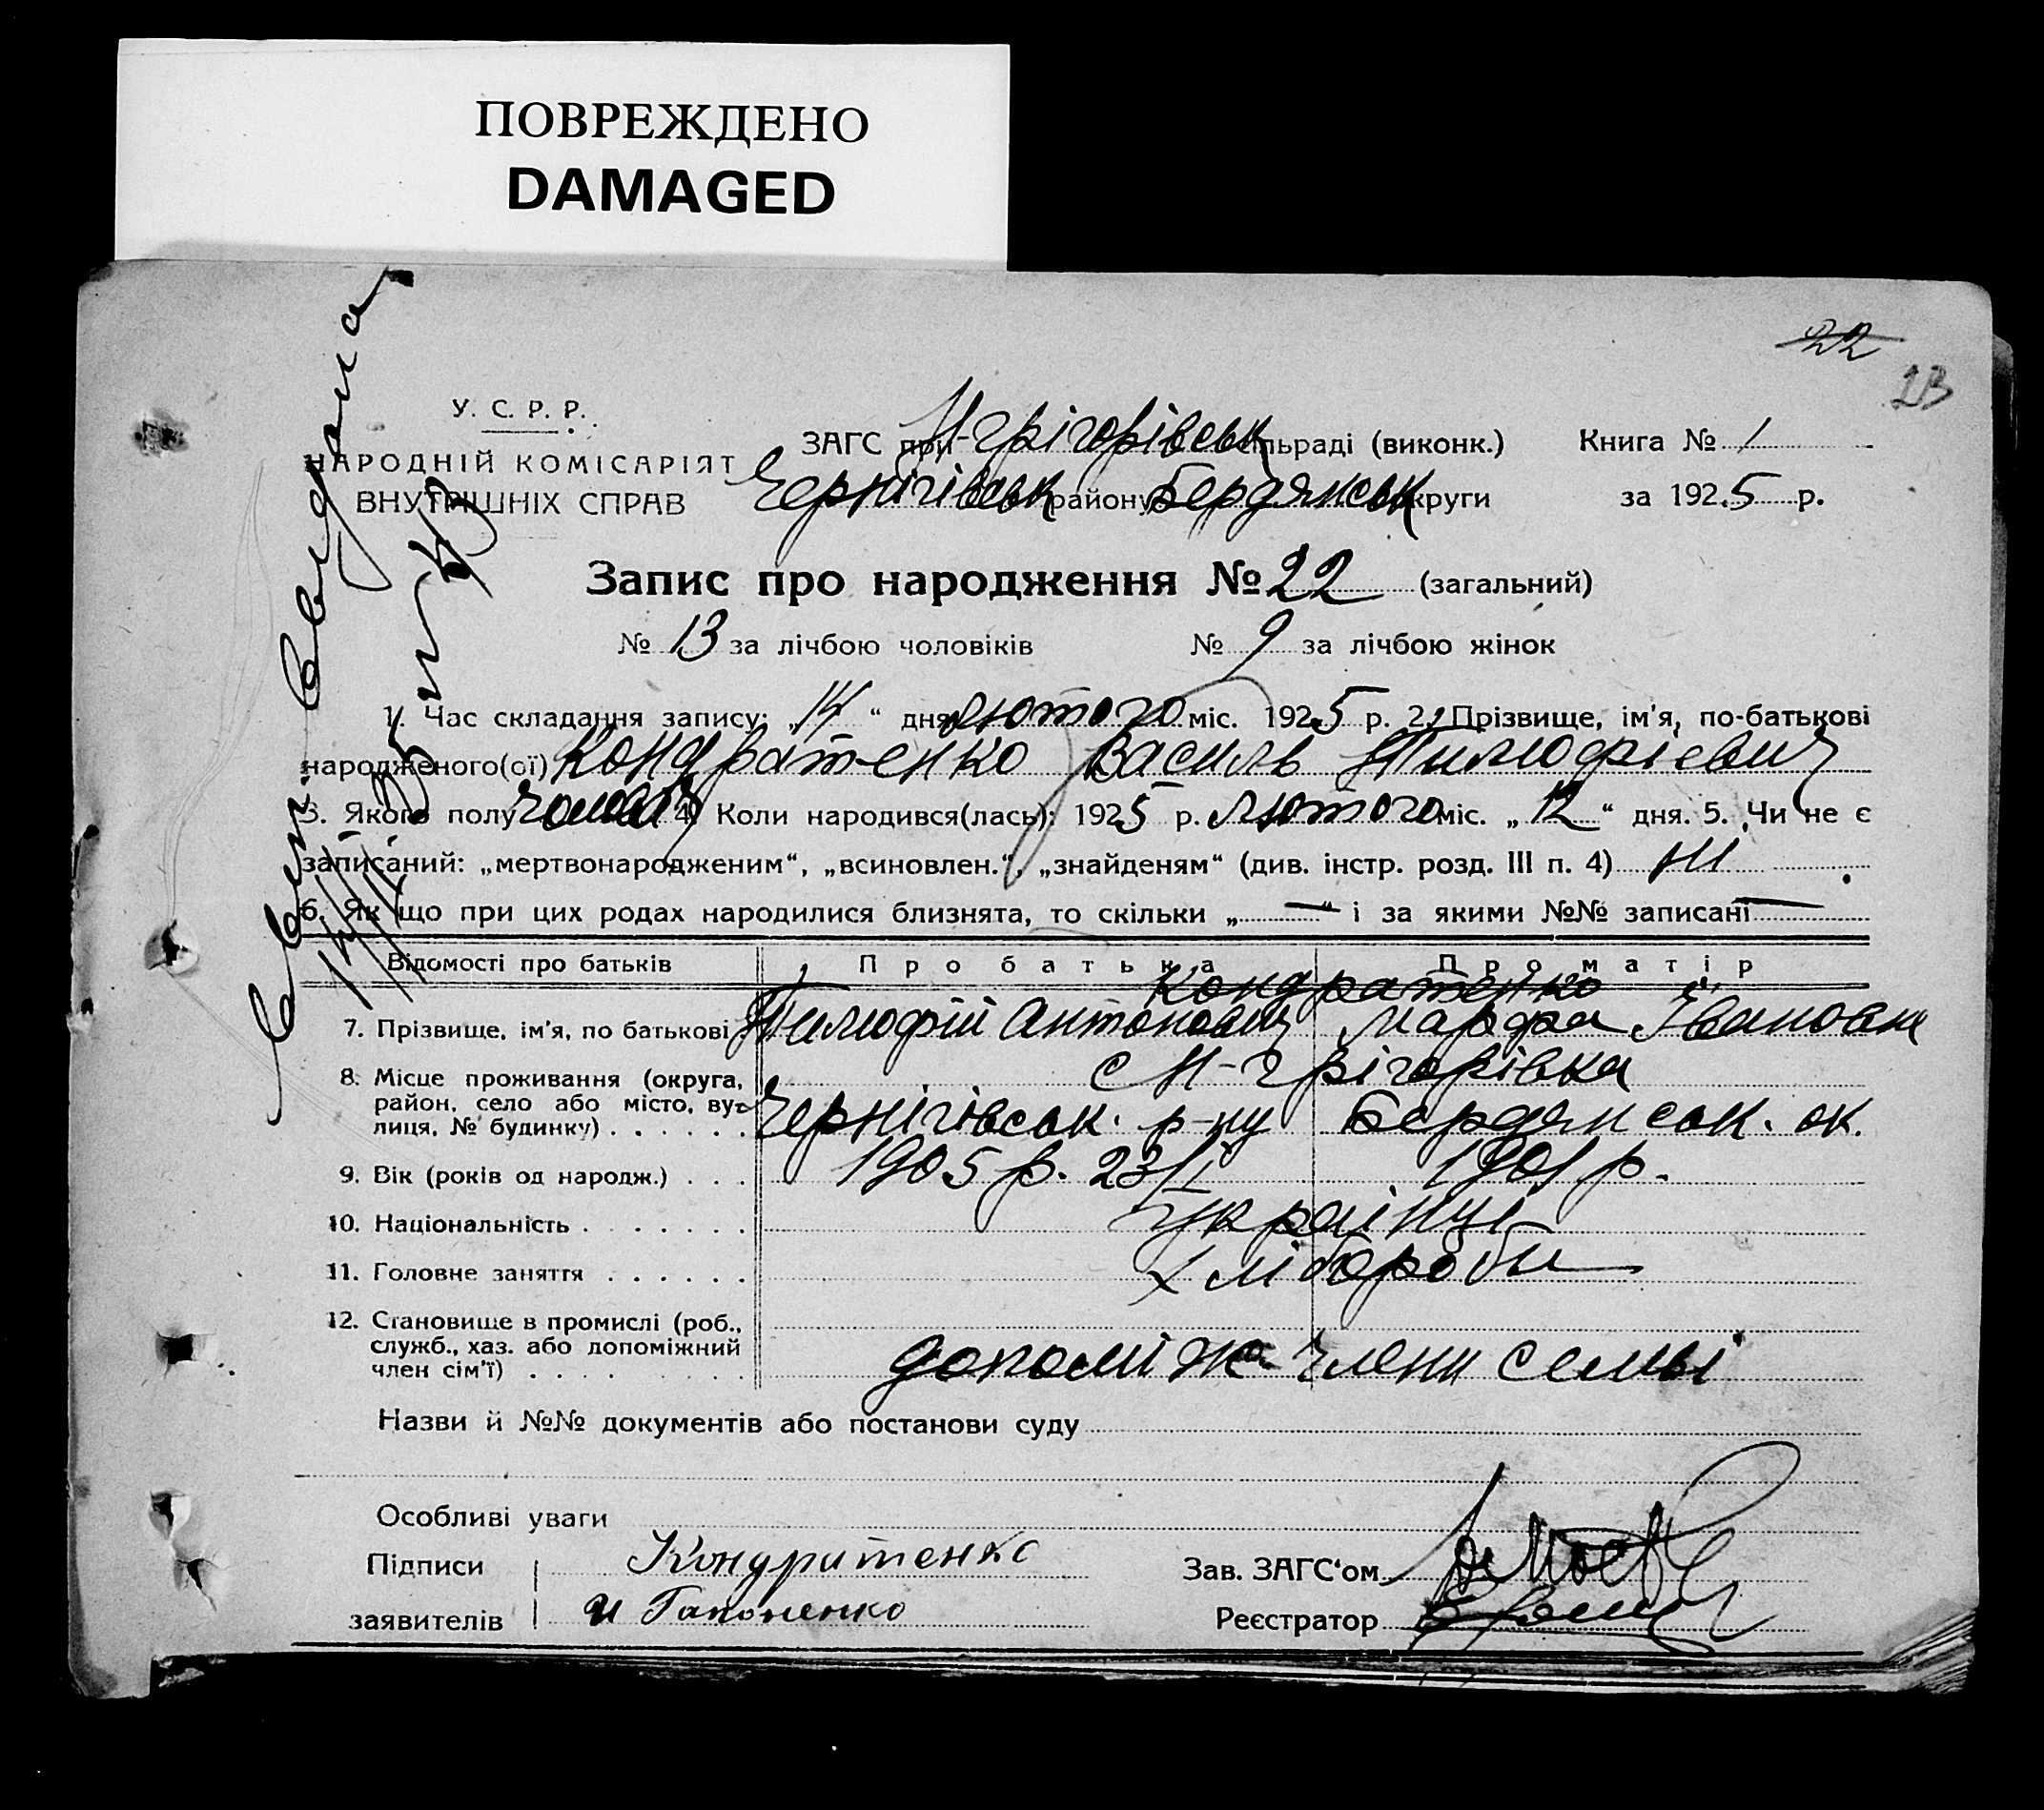 ПОВРЕЖДЕНО
DAMAGED
22
23
У. С. Р. Р.
НАРОДНІЙ КОМІСАРІЯТ
ВНУТРІШНІХ СПРАВ
ЗАГС при Н-Грігорівськ сільраді (виконк.) Книга № 1
Чернігівськ району Бердянськ округи за 1925 р.
Запис про народження № 22 (загальний)
№ 13 за лічбою чоловіків № 9 за лічбою жінок
1. Час складання запису: „14“ дня лютого міс. 1925 р. 2. Прізвище, ім'я, по-батькові
народженого(ої) Кондратенко Василь Тимофієвич
3. Якого полу чолов 4. Коли народився(лась): 1925 р. лютого міс. „12“ дня. 5. Чи не є
записаний: „мертвонародженим“, „всиновлен.“, „знайденям“ (див. інстр. розд. III п. 4) ні
6. Як що при цих родах народилися близнята, то скільки „—“ і за якими №№ записані —
Відомості про батьків Про батька Про матір
Кондратенко
7. Прізвище, ім'я, по батькові Тимофій Антонович Марфа Івановна
8. Місце проживання (округа, с Н-Грігорівка
район, село або місто, ву-
лиця, № будинку) . . . . . . Чернігівськ. р-ну Бердянськ. ок.
9. Вік (років од народж.) . . . 1905 р. 23/I 1901 р.
10. Національність . . . . . . . українці
11. Головне заняття . . . . . . хліборобы
12. Становище в промислі (роб.,
служб., хаз. або допоміжний
член сім'ї) . . . . . . . . . допоміж. члени семьі
Назви й №№ документів або постанови суду
Особливі уваги
Підписи Кондратенко Зав. ЗАГС'ом
заявителів и Гапоненко Реєстратор